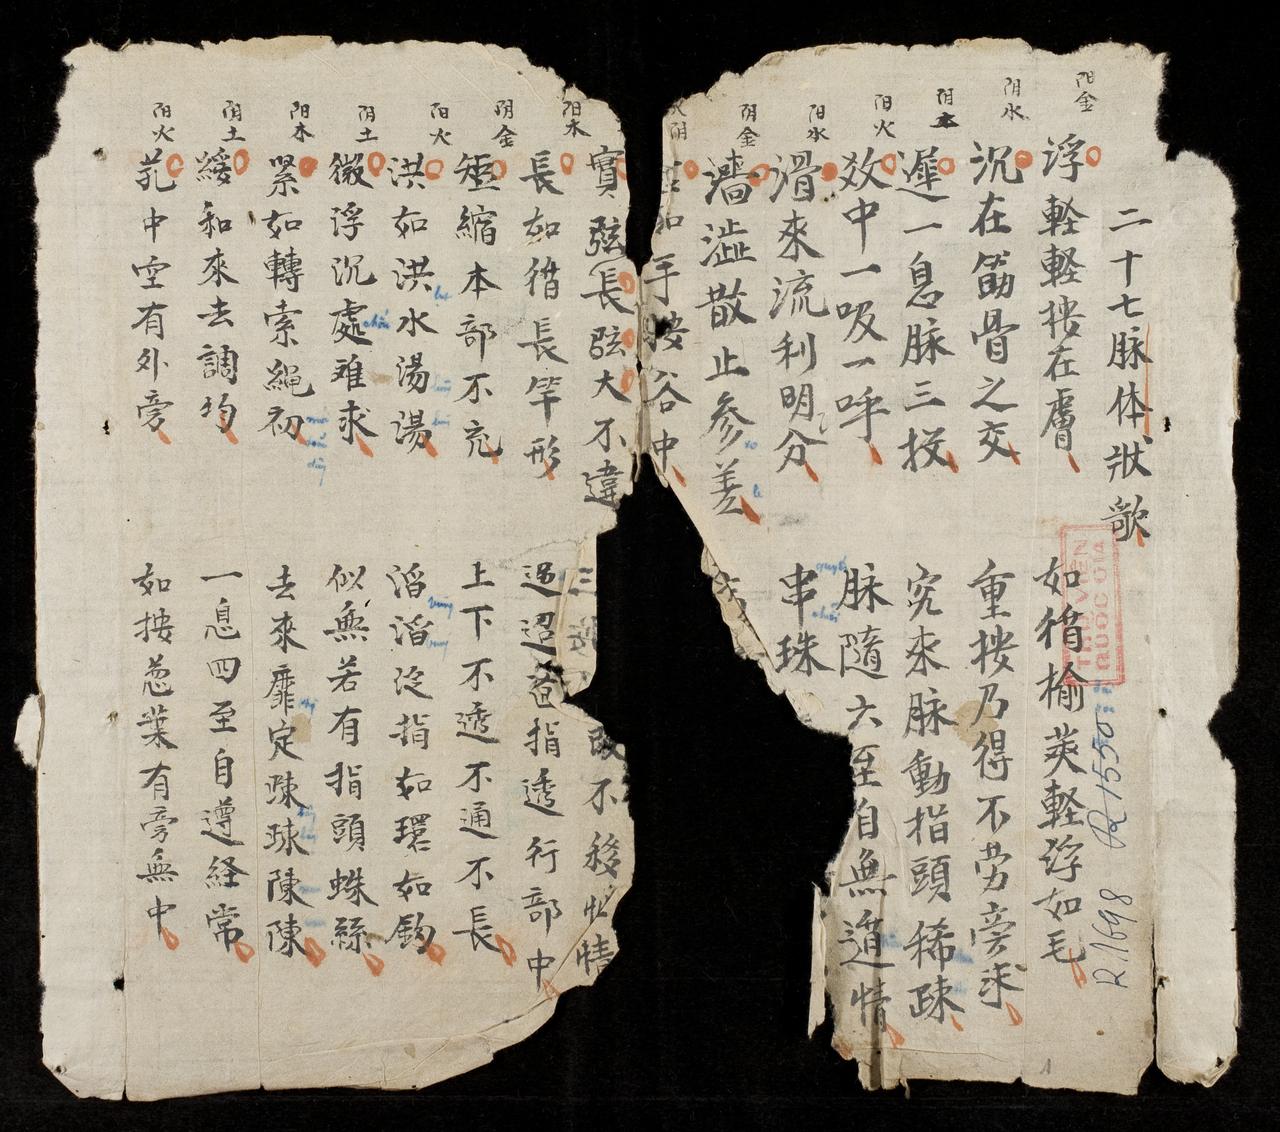 二十七脉体狀歌
阳金
浮軽軽按在膚
如循榆莢軽浮如毛
阴水
沉在筋骨之交
重按乃得不劳旁求
阴木
遲一息脉三投
究来脉動指頭稀疎
阳火
数中一吸一呼
脉隨六至自無遁情
阳水
滑来流利明分
串珠
阴金
濇澁散止参差
如手按谷中
實弦長弦大不違
三
改不移
情
阳木
長如循長竿形
迢迢蒼指透行部中
阴金
短縮本部不充
上下不透不通不長
阳火
洪如洪水湯湯
滔滔泛指如環如鈞
阴土
微浮沉處难求
似無若有指頭蛛絲
阳木
緊如轉索繩初
去来靡定踈踈陳陳
阴土
緩和来去調均
一息四至自遵経常
阳火
芤中空有外旁
如按葱葉有旁無中
THƯ VIỆN
QUỐC GIA
R.1698
R 1550